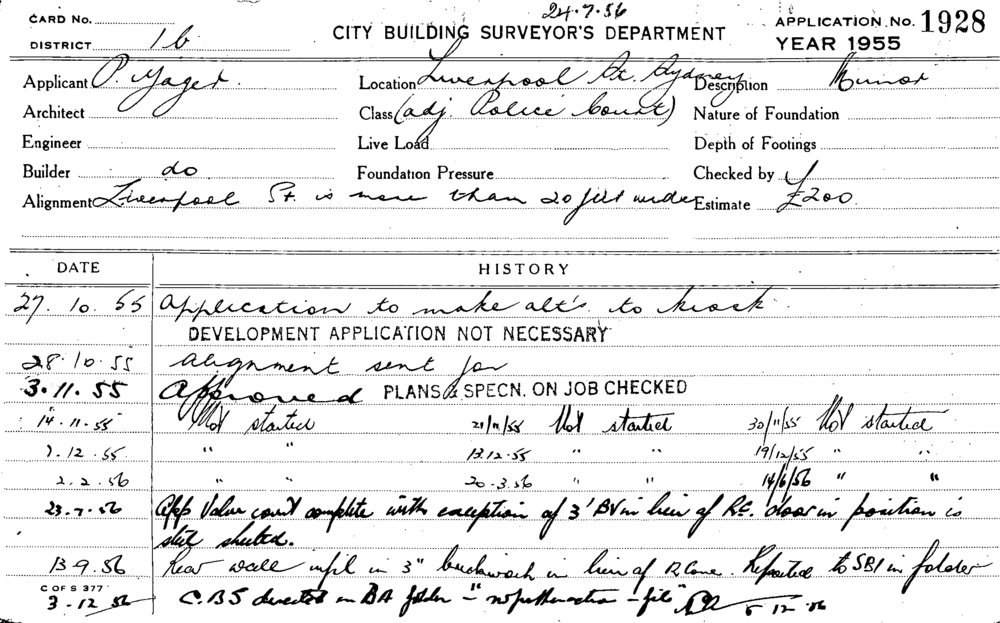 24.7.56
CARD No.
DISTRICT 1b
CITY BUILDING SURVEYOR'S DEPARTMENT
APPLICATION No. 1928
YEAR 1955
Applicant P. Yager Location Liverpool St. Sydney Description Minor
Architect Class (adj. Police Court) Nature of Foundation
Engineer Live Load Depth of Footings
Builder do Foundation Pressure Checked by
Alignment Liverpool St. is more than 20 feet wide Estimate £200
DATE HISTORY
27.10.55 Application to make alt's to kiosk
DEVELOPMENT APPLICATION NOT NECESSARY
28.10.55 Alignment sent for
3.11.55 Approved PLANS & SPECN. ON JOB CHECKED
14.11.55 Not started 21/11/55 Not started 30/11/55 Not started
7.12.55 " " 13.12.55 " " 19/12/55 " "
2.2.56 " " 20.3.56 " " 14/6/56 " "
23.7.56 App Value const complete with exception of 3" BV in lieu of door in position is
steel sheeted.
13.9.56 Rear wall in 3" brickwork in lieu of Reported to SBI in folder
C OF S 377
3.12.56 C.B.S directed in BA folder - "no further action - file" 5.12.56